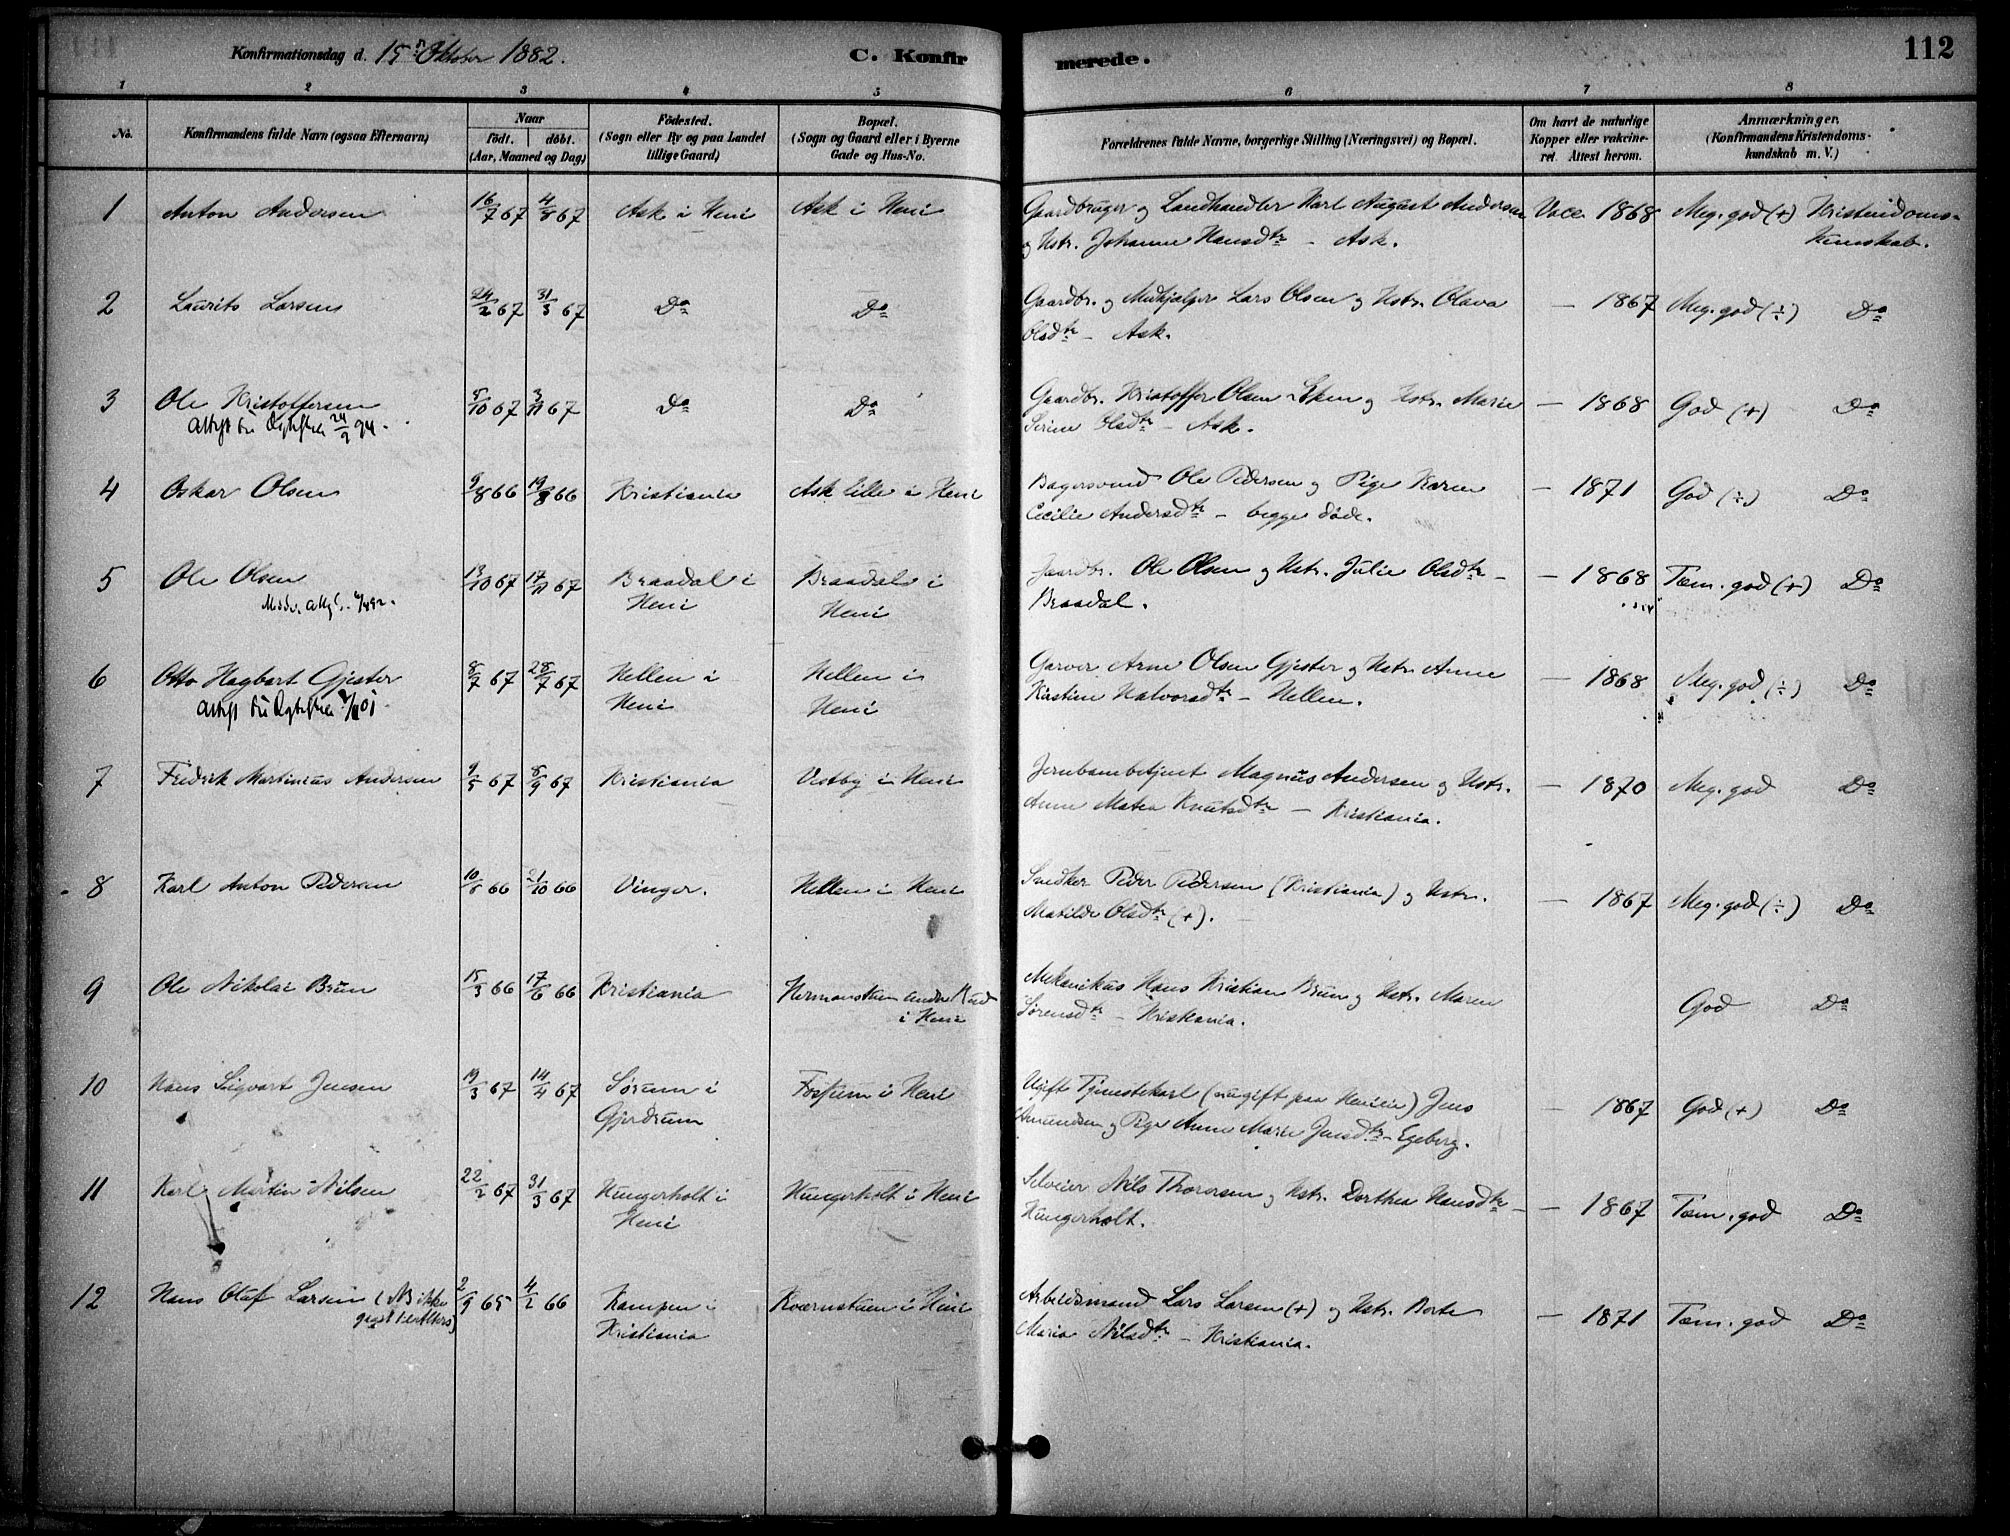 Konfirmationsdag d. 15de Oktober 1882.
C. Konfir
merede.
112
1 2 3 4 5 6 7 8
No.
Konfirmandens fulde Navn (ogsaa Efternavn)
Naar
födt. döbt.
(Aar, Maaned og Dag)
Födested.
(Sogn eller By og paa Landet
tillige Gaard)
Bopæl.
(Sogn og Gaard eller i Byerne
Gade og Hus-No.
Forældrenes fulde Navne, borgerlige Stilling (Næringsvei) og Bopæl.
Om havt de naturlige
Kopper eller vakcine-
ret Attest herom.
Anmærkninger.
(Konfirmandens Kristendoms-
kundskab m. V.)
1 Anton Andersen 16/7 67 4/8 67 Ask i Heni Ask i Heni Gaardbruger og Landhandler Karl August Andersen Vacc. 1868 Meg. god (+) Kristendoms-
og Hstr. Johanne Hansdtr – Ask. kunskab.
2 Laurits Larsen 24/2 67 31/3 67 Do Do Gaardbr. og Medhjælper Lars Olsen og Hstr. Olava — 1867 Meg. god (÷) Do
Olsdtr – Ask.
3 Ole Kristoffersen 5/10 67 3/11 67 Do Do Gaardbr. Kristoffer Olsen og Hstr. Marie — 1868 God (+) Do
Attest til Ægtesk. 24/9 94. Olsdtr – Ask.
4 Oskar Olsen 9/8 66 19/8 66 Kristiania Ask lille i Heni Bagersvend Ole Pedersen og Pige Karen — 1871 God (÷) Do
Cecilie Andersdtr – begge døde.
5 Ole Olsen 13/10 67 17/11 67 Braadal i Braadal i Gaardbr. Ole Olsen og Hstr. Julie Olsdtr – — 1868 Tem. god (+) Do
Heni Heni Braadal.
6 Otto Hagbart Gjester 8/7 67 28/7 67 Hellen i Hellen i Garver Arne Olsen Gjester og Hstr. Anne — 1868 Meg. god (÷) Do
Heni Heni Kirstine Halvorsdtr – Hellen.
7 Fredrik Martinius Andersen 9/5 67 8/9 67 Kristiania Vestby i Heni Jernbanebetjent Magnus Andersen og Hstr. — 1870 Meg. god Do
Anne Matea Knutsdtr – Kristiania.
8 Karl Anton Pedersen 10/8 66 21/10 66 Vinger. Hellen i Heni Snedker Peder Pedersen (Kristiania) og Hstr. — 1867 Meg. god (÷) Do
Matilde Olsdtr (+).
9 Ole Nikolai Brun 15/3 66 17/6 66 Kristiania Hermanstuen under Rud Mekanikus Hans Kristian Brun og Hstr. Maren God Do
i Heni Sørensdtr – Kristiania.
10 Hans Sigvart Jensen 19/3 67 14/4 67 Sørum i i Heni Ugift Tjenestekarl (nu gift paa ) Jens — 1867 God (+) Do
Gjerdrum Amundsen og Pige Anne Marie Jensdtr – Egeberg.
11 Karl Martin Nilsen 22/2 67 31/3 67 Hungerholt i Hungerholt i Heni Selveier Nils Thoresen og Hstr. Dorthea Hansdtr – — 1867 Tem. god Do
Heni Hungerholt.
12 Hans Olaf Larsen (NB ikke 2/9 65 4/2 66 Kampen i Kværnstuen i Heni Arbeidsmand Lars Larsen (+) og Hstr. Berte — 1871 Tem. god Do
gaaet til Alters) Kristiania Maria Nilsdtr – Kristiania.